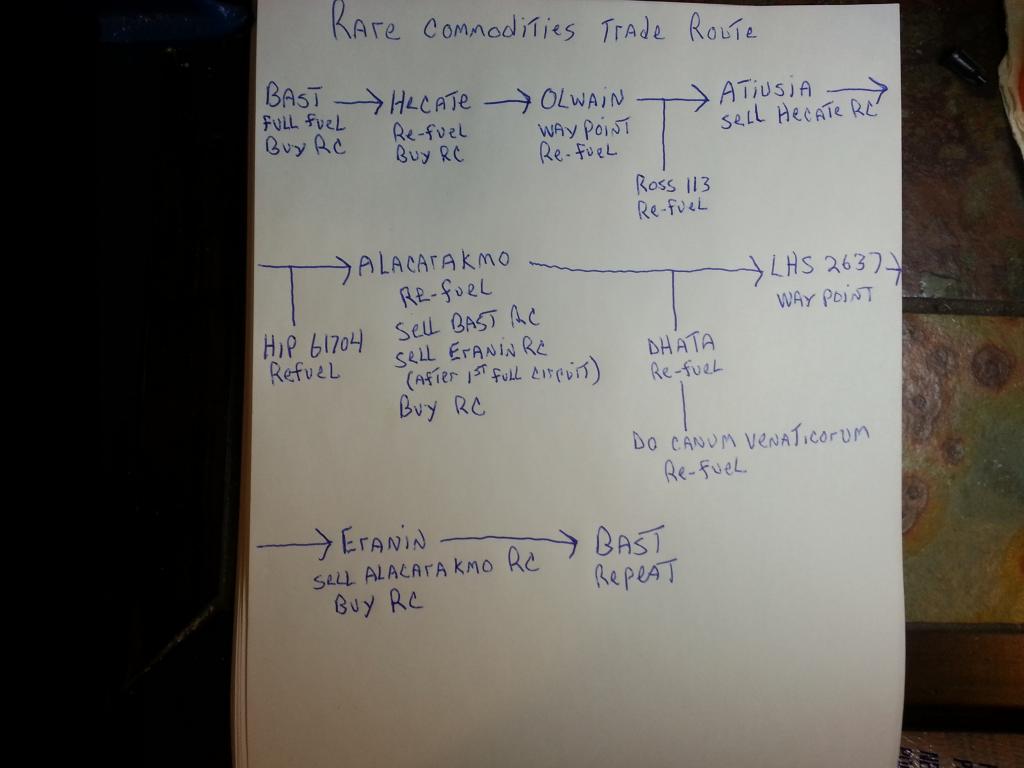 RARE COMMODITIES TRADE ROUTE
BAST
FULL FUEL
BUY RC
HECATE
Re-fuel
BUY RC
OLWAIN
WAY POINT
Re-fueL
Ross 113
Re-fueL
ATIUSIA
SELL HECATE RC
HIP 61704
RefueL
ALACATAKMO
RE-fueL
SELL BAST RC
SELL ERANIN RC
(AfTER 1ST fuLL circuiT)
BUY RC
DHATA
Re-fueL
DO CANUM VENATICORUM
Re-fueL
LHS 2637
WAY POINT
ERANIN
SELL ALACATAKMO RC
BUY RC
BAST
RepeAT